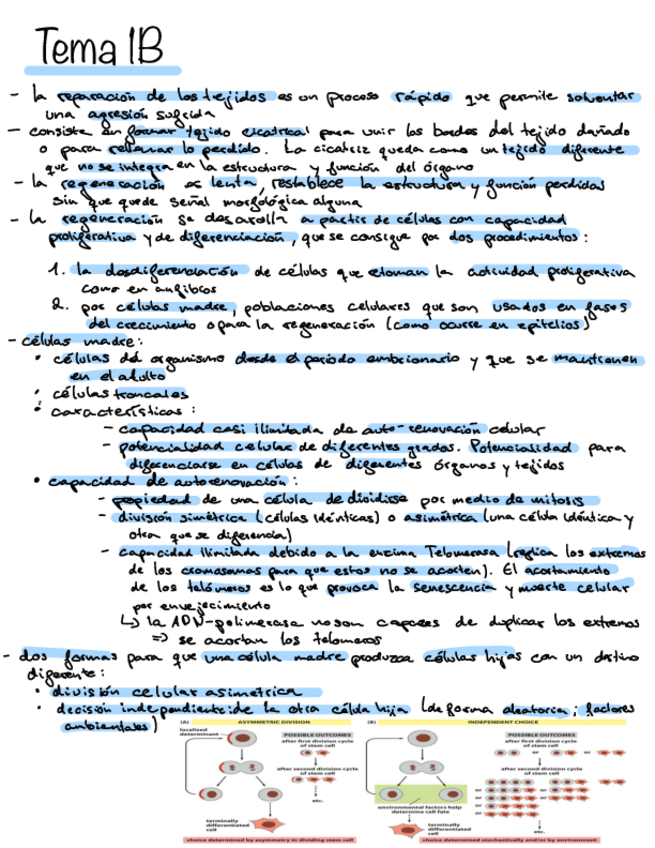 Tema 1B
- la reparación de los tejidos es un proceso rápido que permite solventar
una agresión sufrida
- consiste en formar tejido cicatrical para unir los bordes del tejido dañado
o para rellenar lo perdido. La cicatriz queda como un tejido diferente
que no se integra en la estructura y función del órgano
- la regeneración es lenta, restablece la estructura y función perdidas
sin que quede señal morfológica alguna
- la regeneración se desarolla a partir de células con capacidad
proligerativa y de diferenciación, que se consigue por dos procedimientos:
1. la desdiferenciación de células que retoman la actividad proligerativa
como en anfibios
2. por células madre, poblaciones celulares que son usados en fases
del crecimiento o para la regeneración (como ocurre en epitelios)
- células madre:
• células del organismo desde el periodo embrionario y que se mantienen
en el adulto
• células troncales
• características:
- capacidad casi ilimitada de auto-renovación celular
- potencialidad celular de diferentes grados. Potencialidad para
diferenciarse en células de diferentes órganos y tejidos
• capacidad de autorenovación:
- propiedad de una célula de dividirse por medio de mitosis
- división simétrica (células idénticas) o asimétrica (una célula idéntica y
otra que se diferencia)
- capacidad ilimitada debido a la enzima Telomerasa (replica los extremos
de los cromosomas para que estos no se acorten). El acortamiento
de los telómeros es lo que provoca la senescencia y muerte celular
por envejecimiento
↳ la ADN-polimerasa no son capaces de duplicar los extremos
⇒ se acortan los telomeros
- dos formas para que una célula madre produzca células hijas con un destino
diferente:
• división celular asimetrica
• decisión independiente: de la otra célula hija (de forma aleatoria; factores
ambientales)
(A) ASYMMETRIC DIVISION
localized
determinant
POSSIBLE OUTCOMES
after first division cycle
of stem cell
after second division cycle
of stem cell
etc.
terminally
differentiated
cell
choice determined by asymmetry in dividing stem cell
(B) INDEPENDENT CHOICE
POSSIBLE OUTCOMES
after first division cycle
of stem cell
or or
after second division cycle
of stem cell
or or
or or
or or
or or
etc.
environmental factors help
determine cell fate
terminally
differentiated
cell
choice determined stochastically and/or by environment